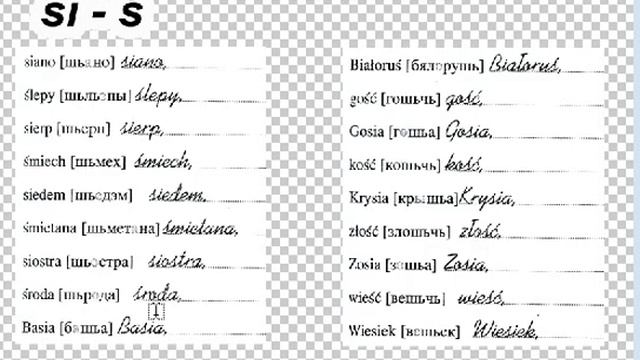 SI - S
siano [шьано] siano,
ślepy [шьлепы] ślepy,
sierp [шьерп] sierp,
śmiech [шьмех] śmiech,
siedem [шьедэм] siedem,
śmietana [шьметана] śmietana,
siostra [шьостра] siostra,
środa [шьрода] środa,
Basia [башьа] Basia,
Białoruś [бялорушь] Białoruś,
gość [гошьчь] gość,
Gosia [гошьа] Gosia,
kość [кошьчь] kość,
Krysia [крышьа] Krysia,
złość [злошьчь] złość,
Zosia [зошьа] Zosia,
wieść [вешьчь] wieść,
Wiesiek [вешьек] Wiesiek,